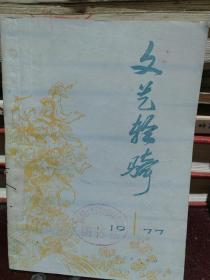 文艺轻骑
10 77